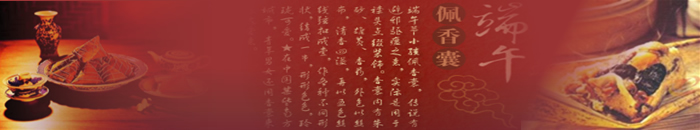 端午
佩香囊
端午节小孩佩香囊，传说有
避邪驱瘟之意，实际是用于
襟头点缀装饰。香囊内有朱
砂、雄黄、香药，外包以丝
布，清香四溢，再以五色丝
线弦扣成索，作各种不同形
状，结成一串，形形色色，玲
珑可爱。☆在中国某些南方